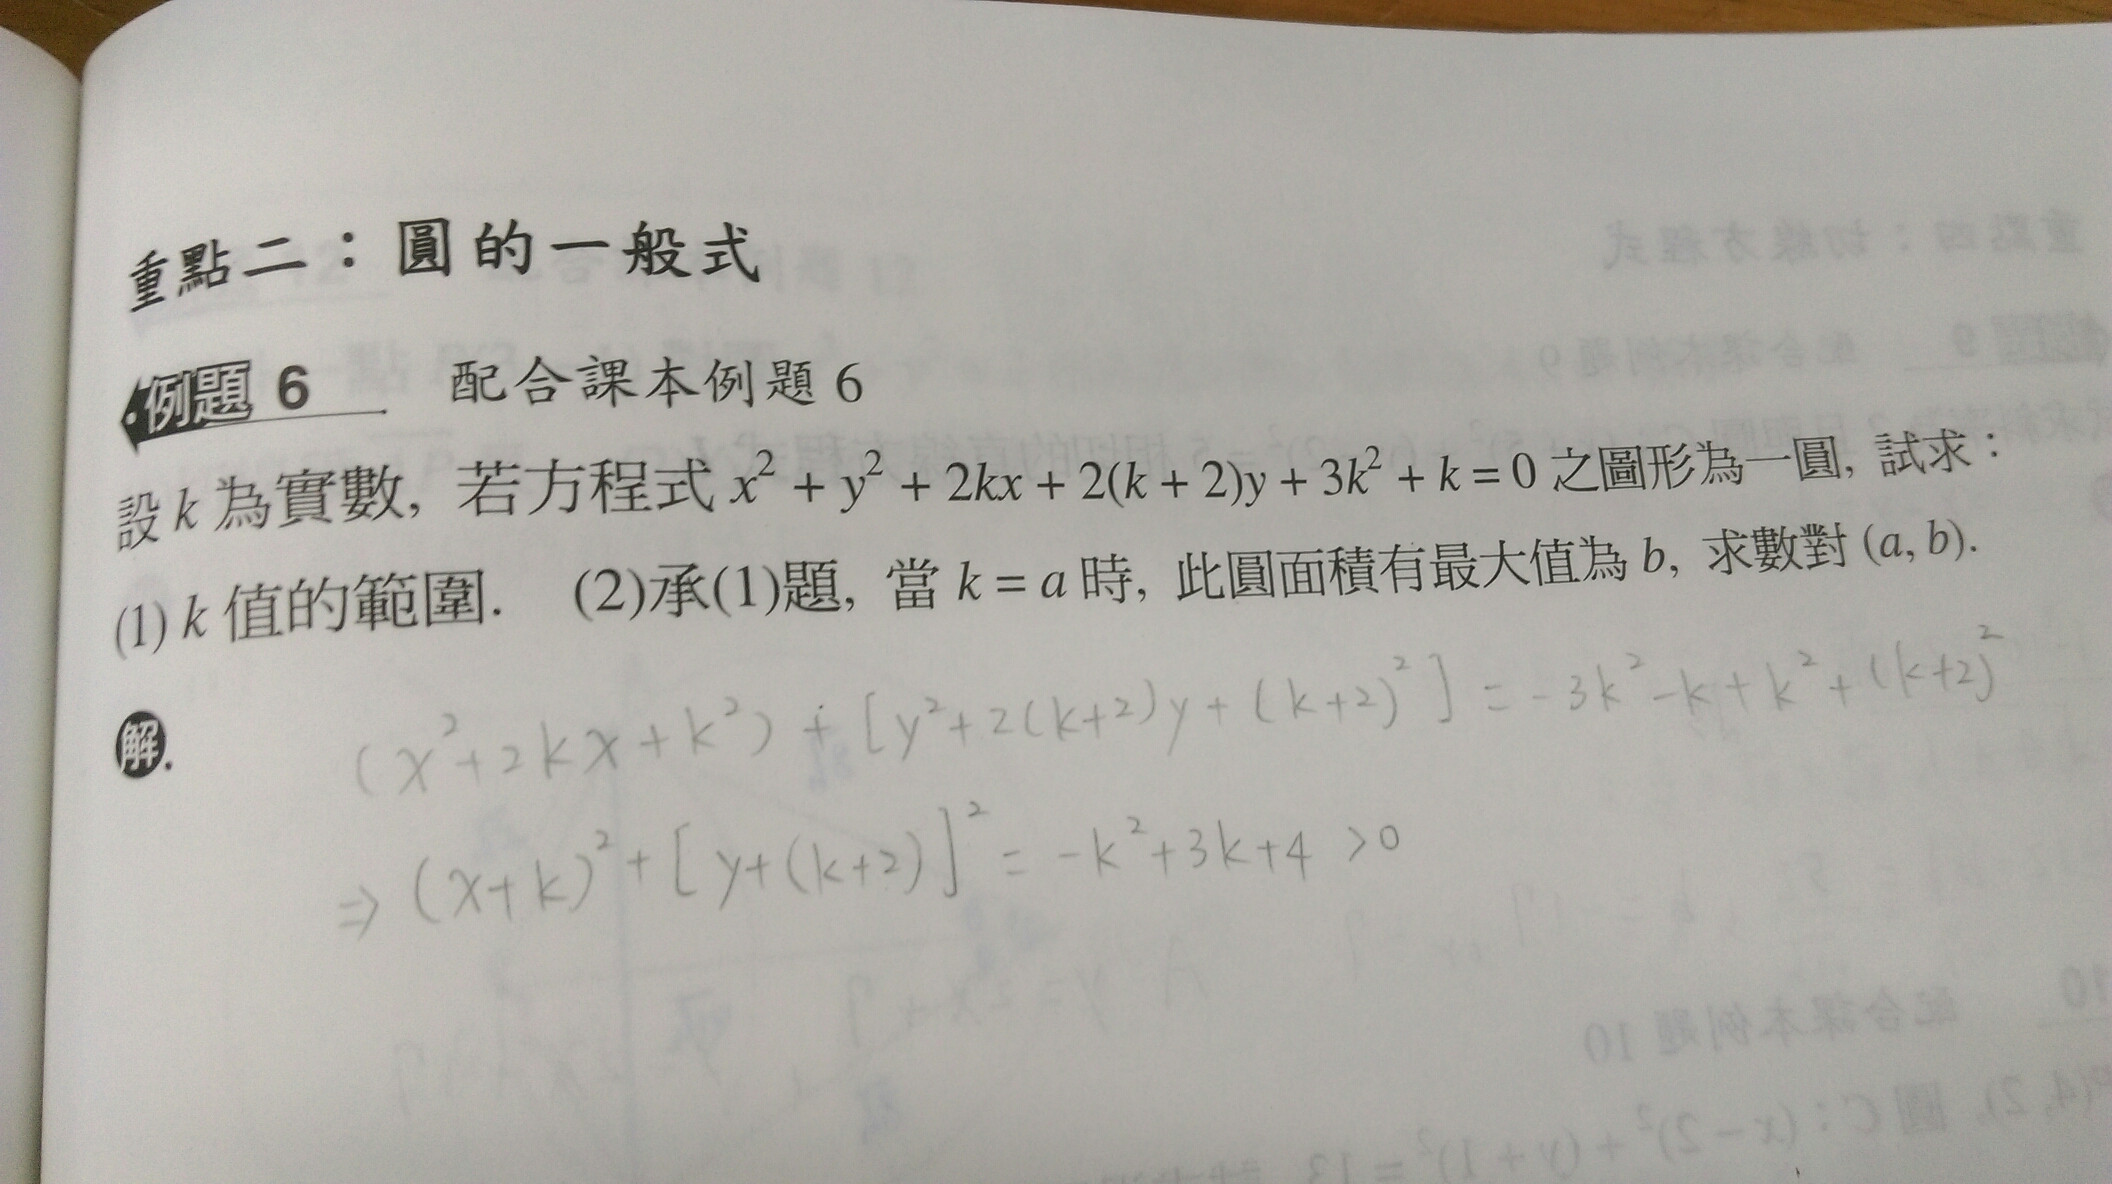 重點二：圓的一般式
例題 6 配合課本例題 6
設 k 為實數, 若方程式 x² + y² + 2kx + 2(k + 2)y + 3k² + k = 0 之圖形為一圓, 試求：
(1) k 值的範圍. (2)承(1)題, 當 k = a 時, 此圓面積有最大值為 b, 求數對 (a, b).
解.
(x²+2kx+k²) + [y²+2(k+2)y+(k+2)²] = -3k²-k+k²+(k+2)²
⇒ (x+k)²+[y+(k+2)]² = -k²+3k+4 >0